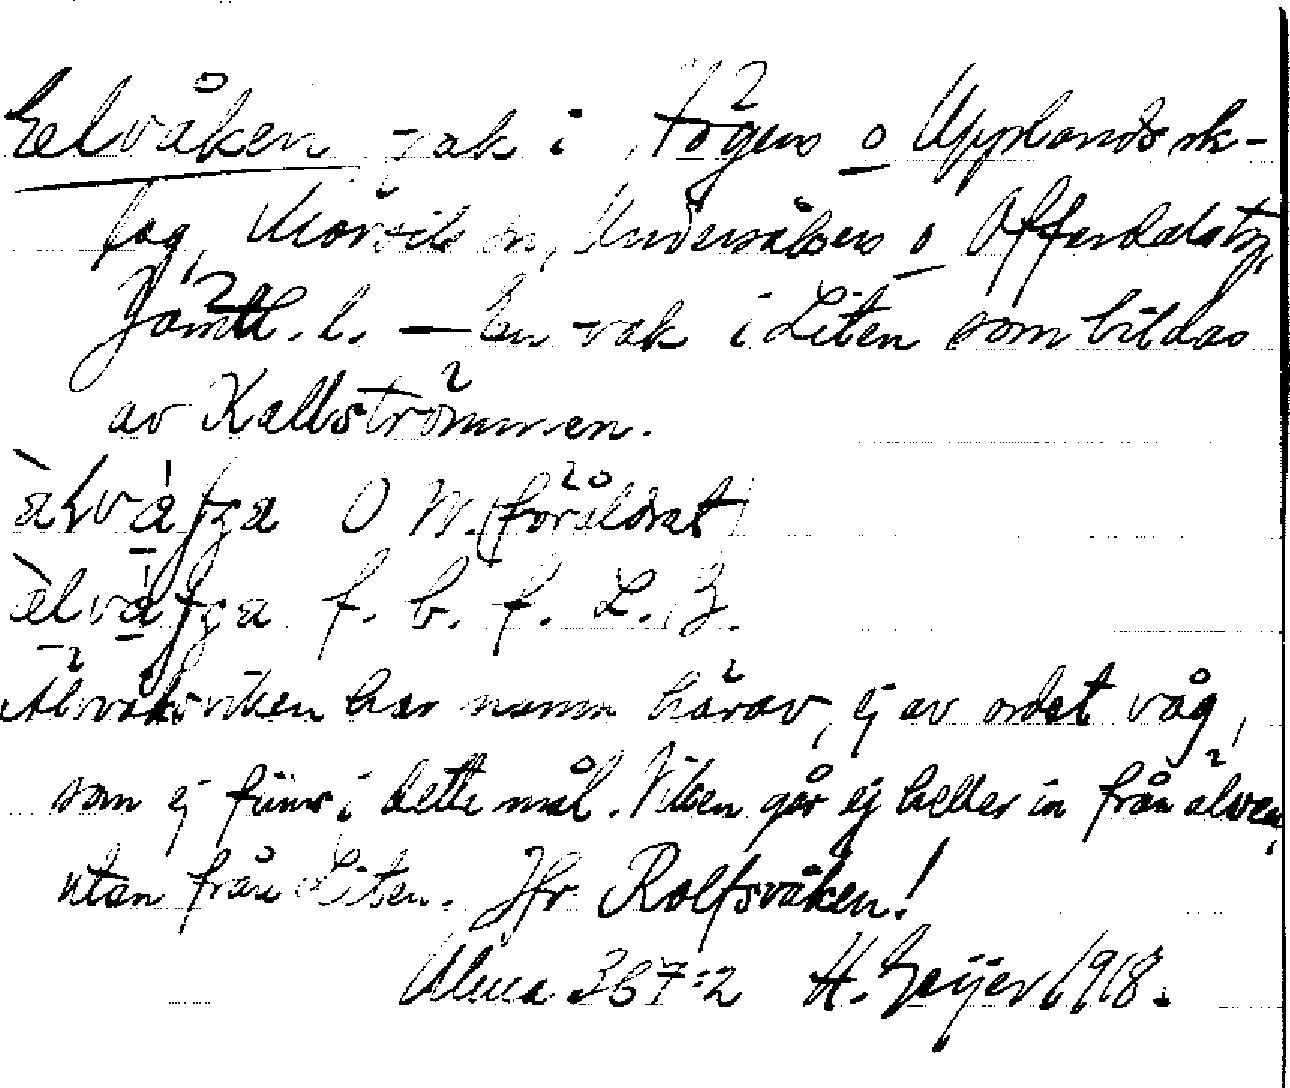 Eelvåken vak i Högens o Upplands sk-
lag, Mörsils sn, Undersåkers o Offerdals tg,
Jämtl. l. — En vak i Liten som bildas
av Kallströmmen.
O W. (föråldrat)
f. b. f. L. Z.
Älvvåksviken har namn härav, ej av ordet våg,
som ej finns i detta mål. Viken går ej heller in från älven,
utan från Liten. Jfr Rolfsvåken!
Alma 367:2 H. Geijer 1918.